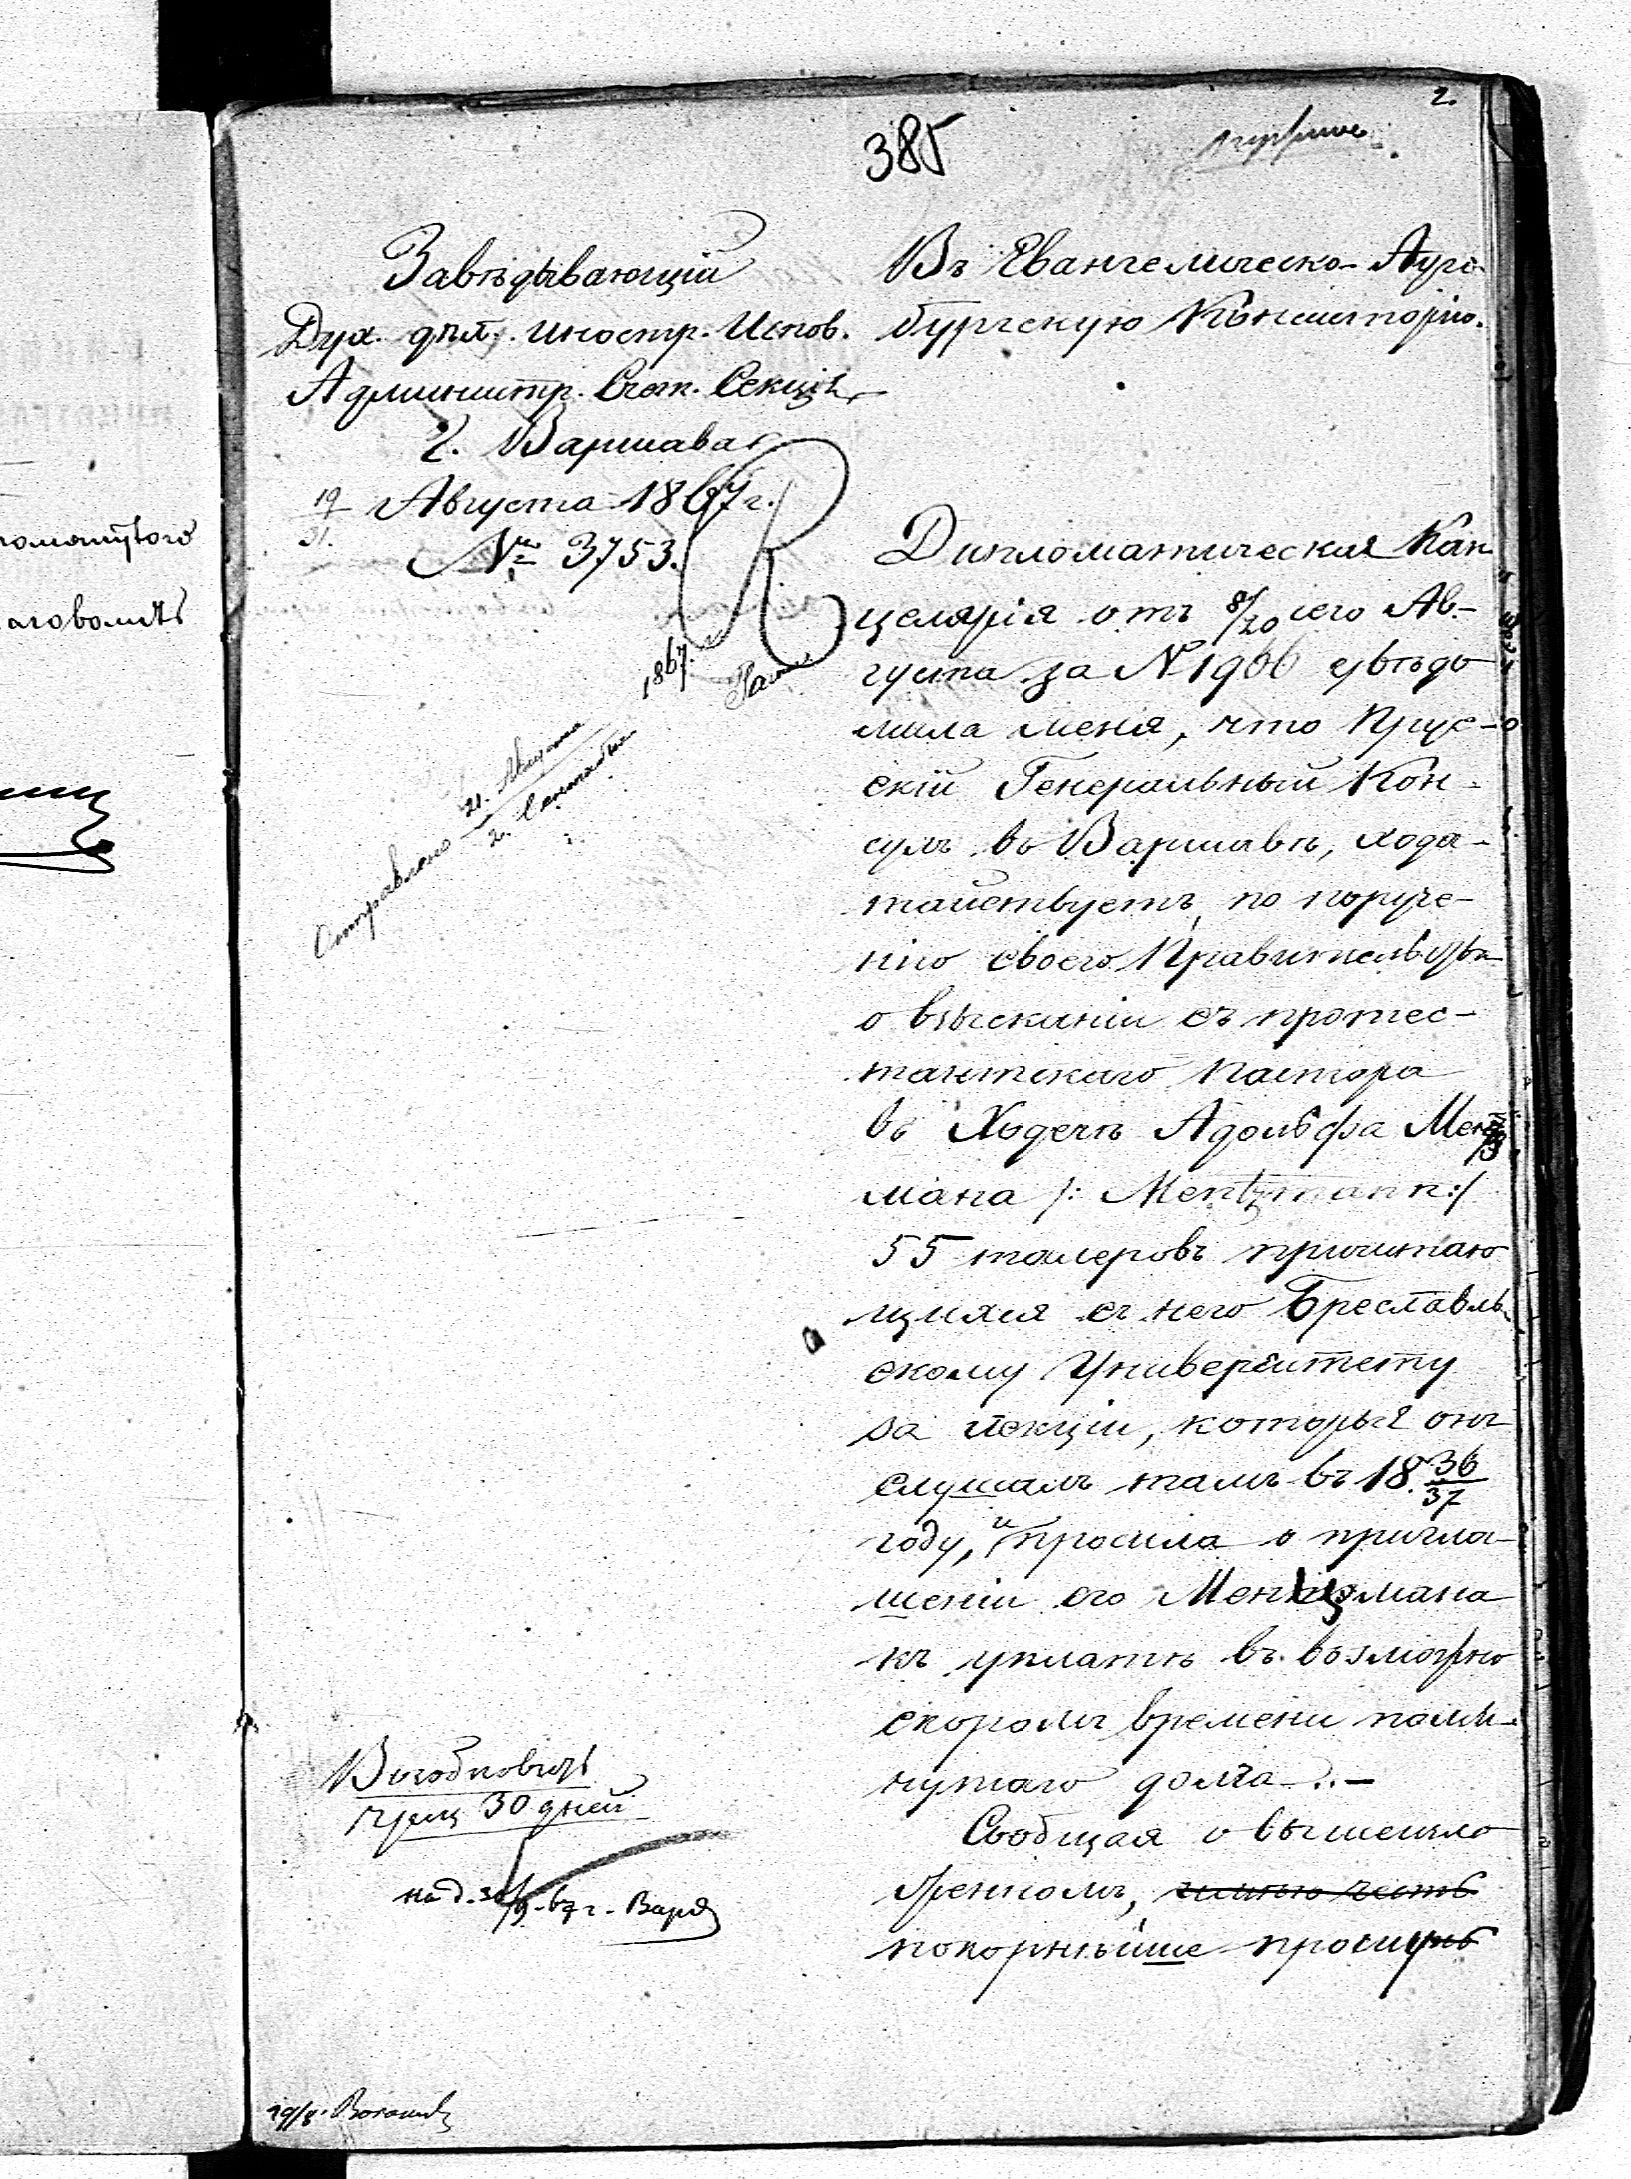 2.
385
Завѣдывающій
Дух. дѣл. иностр. Испов.
Администр. Счет. Секція
г. Варшава
19/31. Августа 1867 г.
№ 3753.
Отправлено 21. Августа / 2. Сентября 1867.
Въ Евангелическо-Аугс-
бургскую Консисторію.
Дипломатическая Кан
целярія отъ 8/20 сего Ав-
густа за № 1966 увѣдо
мила меня, что Прус-
скій Генеральный Кон-
сулъ въ Варшавѣ, хода-
тайствуетъ, по поруче-
нію своего Правительства
о взысканіи съ протес-
тантскаго Пастора
въ Ходечѣ Адольфа Менц
мана /: Mentzmann :/
55 талеровъ причитаю
щихся съ него Бреславль
скому Университету
за лекціи, которыя онъ
слушалъ тамъ въ 18 36/37
году, и просила о пригла-
шеніи его Менцмана
къ уплатѣ въ возможно
скоромъ времени помя-
нутаго долга. –
Сообщая о вышеизло
женномъ, имѣю честь
покорнѣйше просить
чрез 30 дней
на д. 30/9 - 67 г. - Варш
19/8.